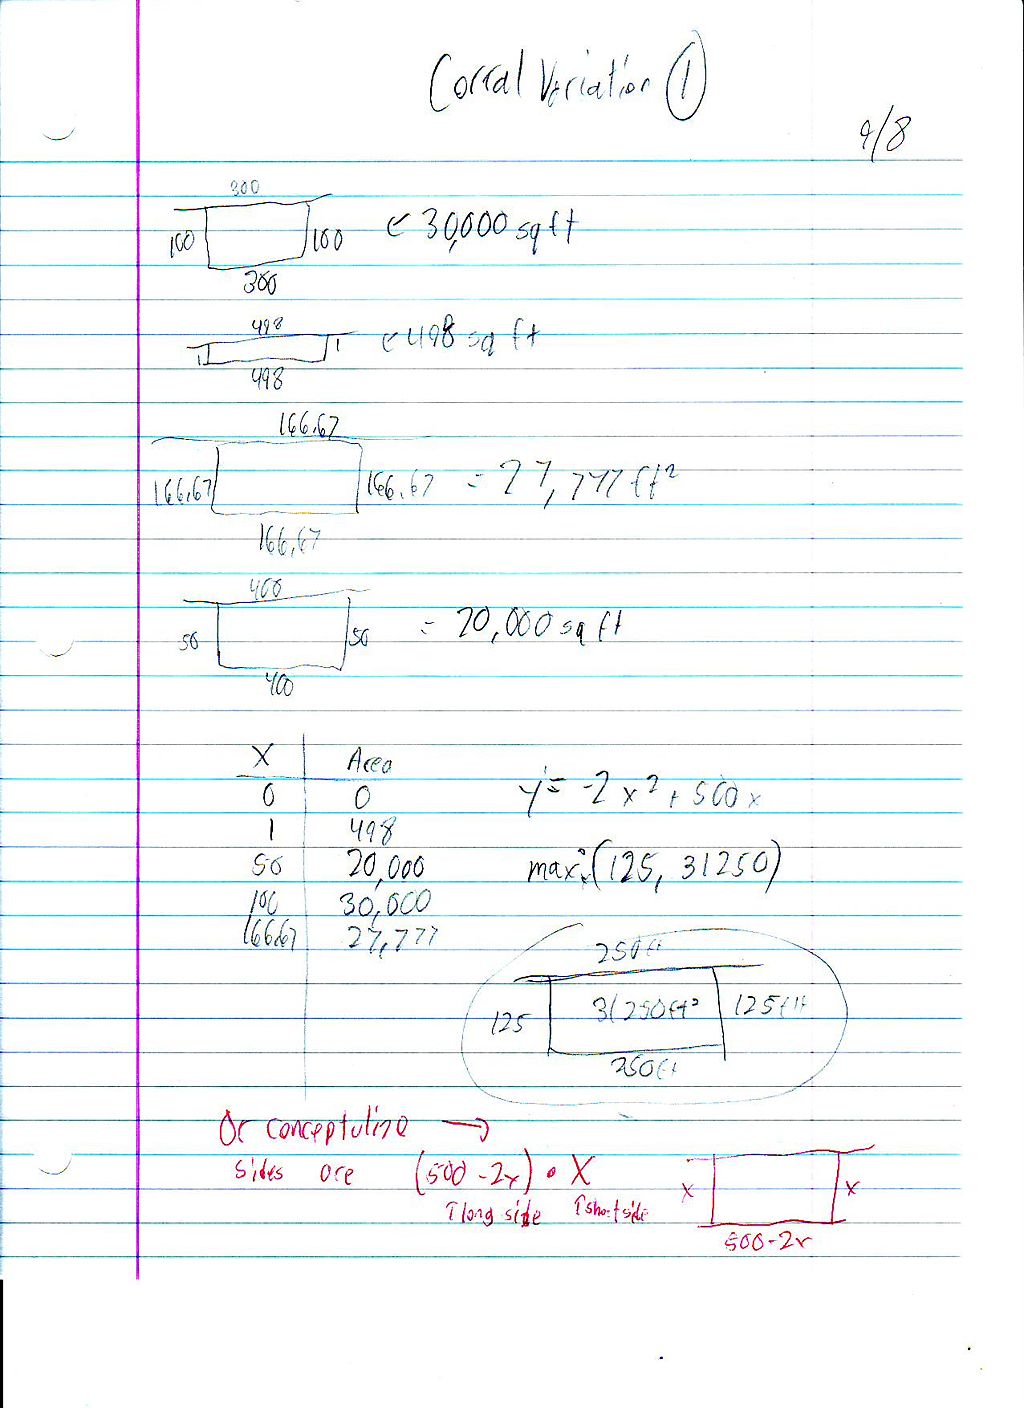 Corral Variation 1
9/8
300
100 100 ← 30,000 sq ft
300
498
1 1 ← 498 sq ft
498
166.67
166.67 166.67 = 27,777 ft²
166.67
400
50 50 = 20,000 sq ft
400
X Area
0 0 y = -2x² + 500x
1 498
50 20,000 max: (125, 31250)
100 30,000
166.67 27,777
250ft
125 31250ft² 125ft
250ft
Or conceptulize →
sides are (500-2x) • X
↑long side ↑short side
x x
500-2x